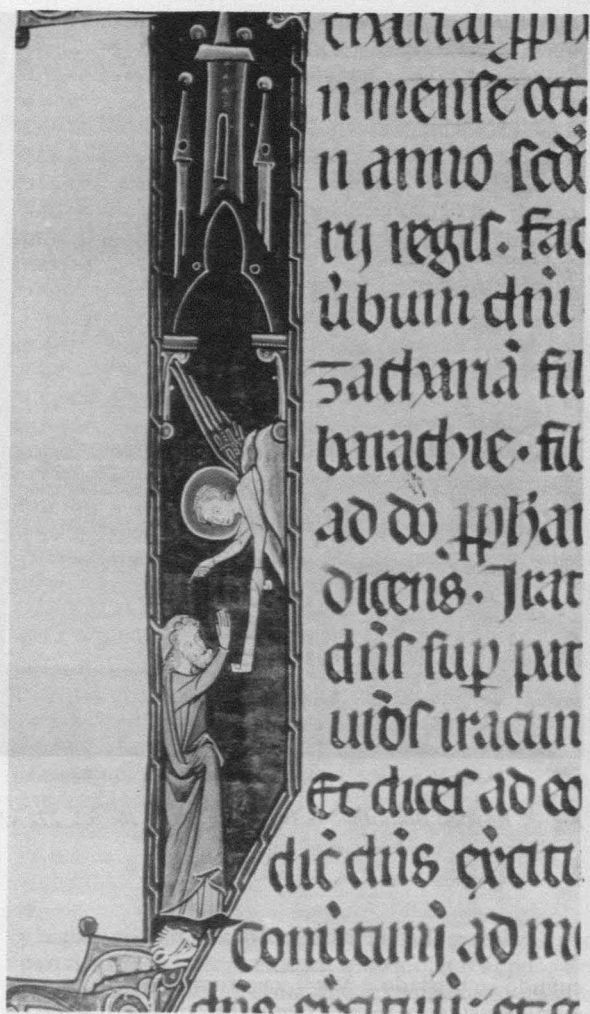 n menſe octa
n anno ſcdo
rij regiſ. fac
ūbum dn̄i
zachariā fil
barachie. fil
ad do. pphat
dicens. Irat
dn̄ſ ſuꝑ pat
iracun
Et diceſ ad eo
dic̄ dn̄s
Conūtimj ad me
dn̄s